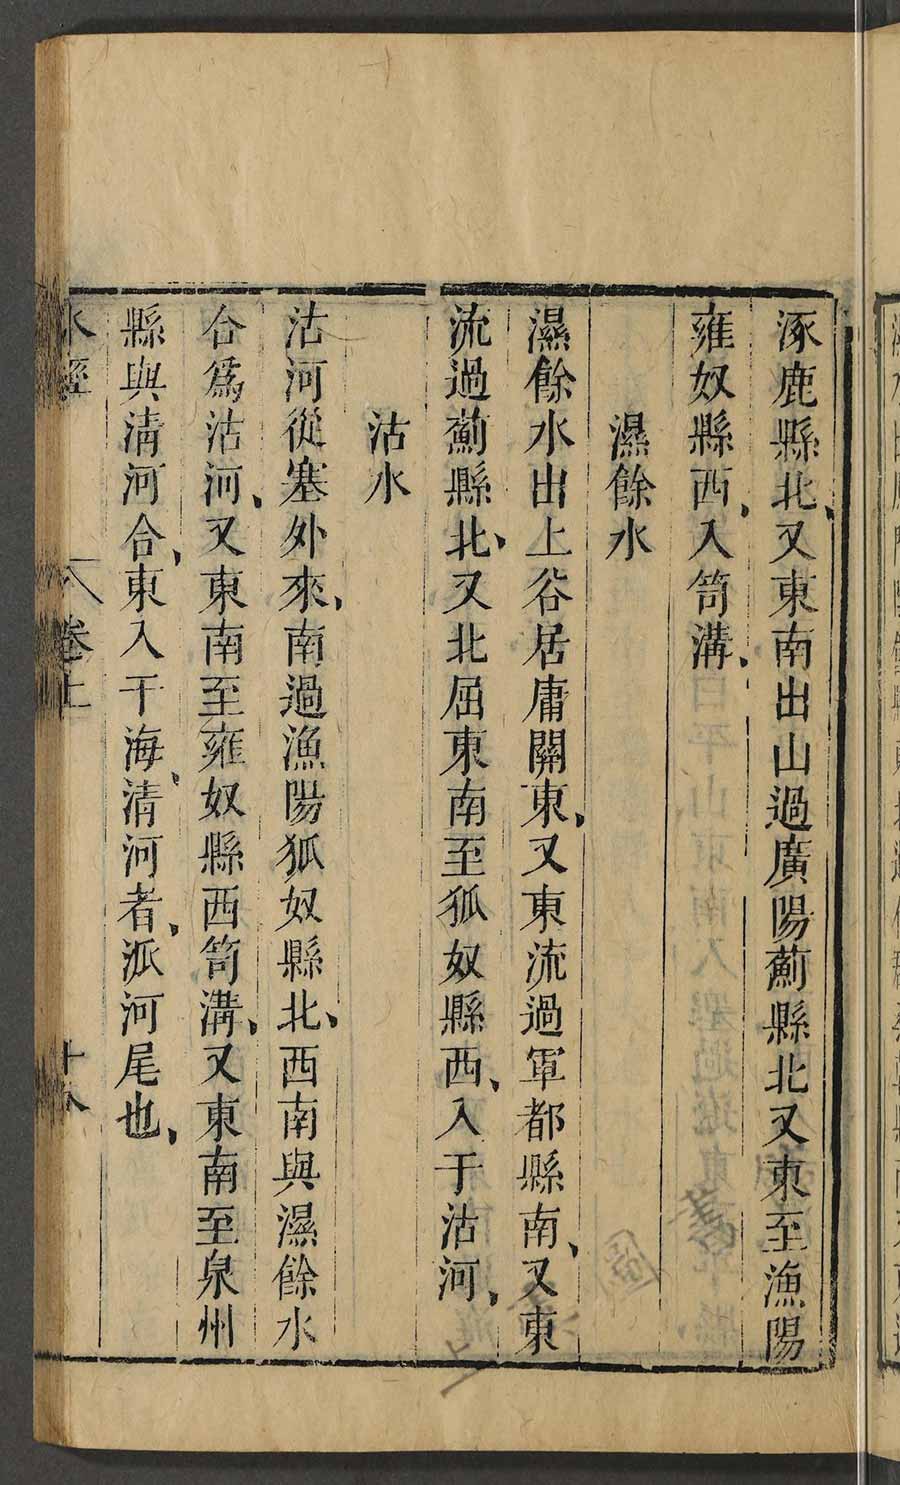 涿鹿縣北、又東南出山過廣陽薊縣北又東至漁陽
雍奴縣西、入笥溝、
濕餘水
濕餘水出上谷居庸關東、又東流過軍都縣南、又東
流過薊縣北、又北屈東南至狐奴縣西、入于沽河、
沽水
沽河從塞外來、南過漁陽狐奴縣北、西南與濕餘水
合爲沽河、又東南至雍奴縣西笥溝、又東南至泉州
縣與清河合、東入于海、清河者、派河尾也、
水經 卷上 十八